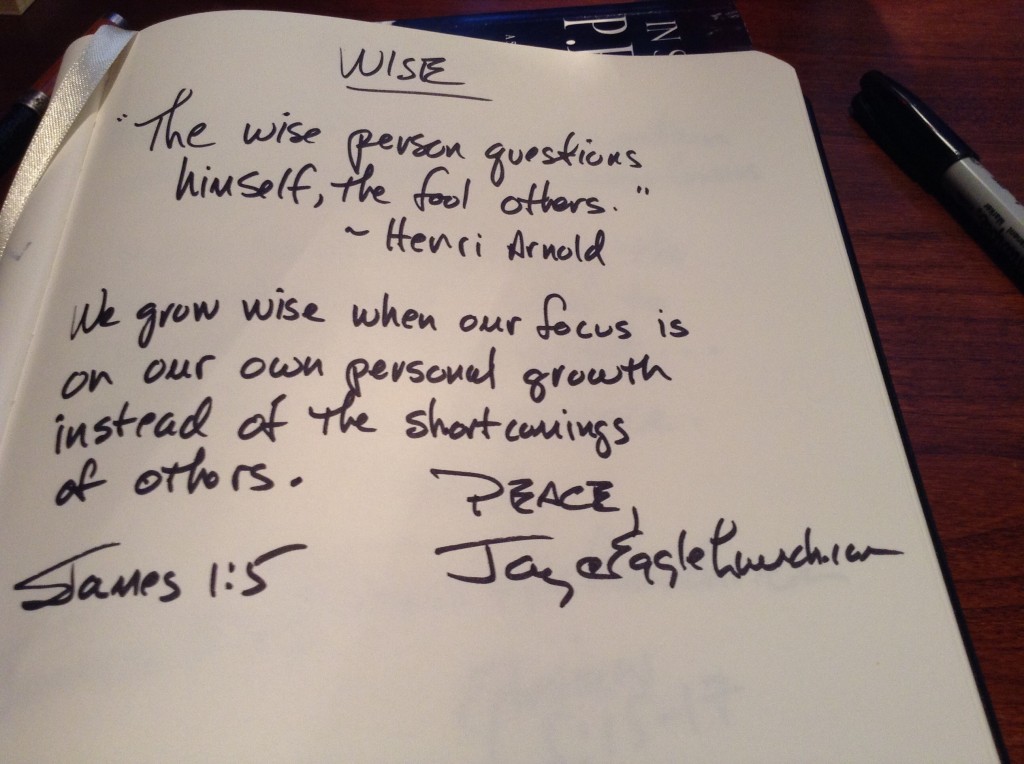 WISE
"The wise person questions
himself, the fool others."
~ Henri Arnold
We grow wise when our focus is
on our own personal growth
instead of the shortcomings
of others.
PEACE,
James 1:5
Jay @EagleLaunch.com
INS
P.